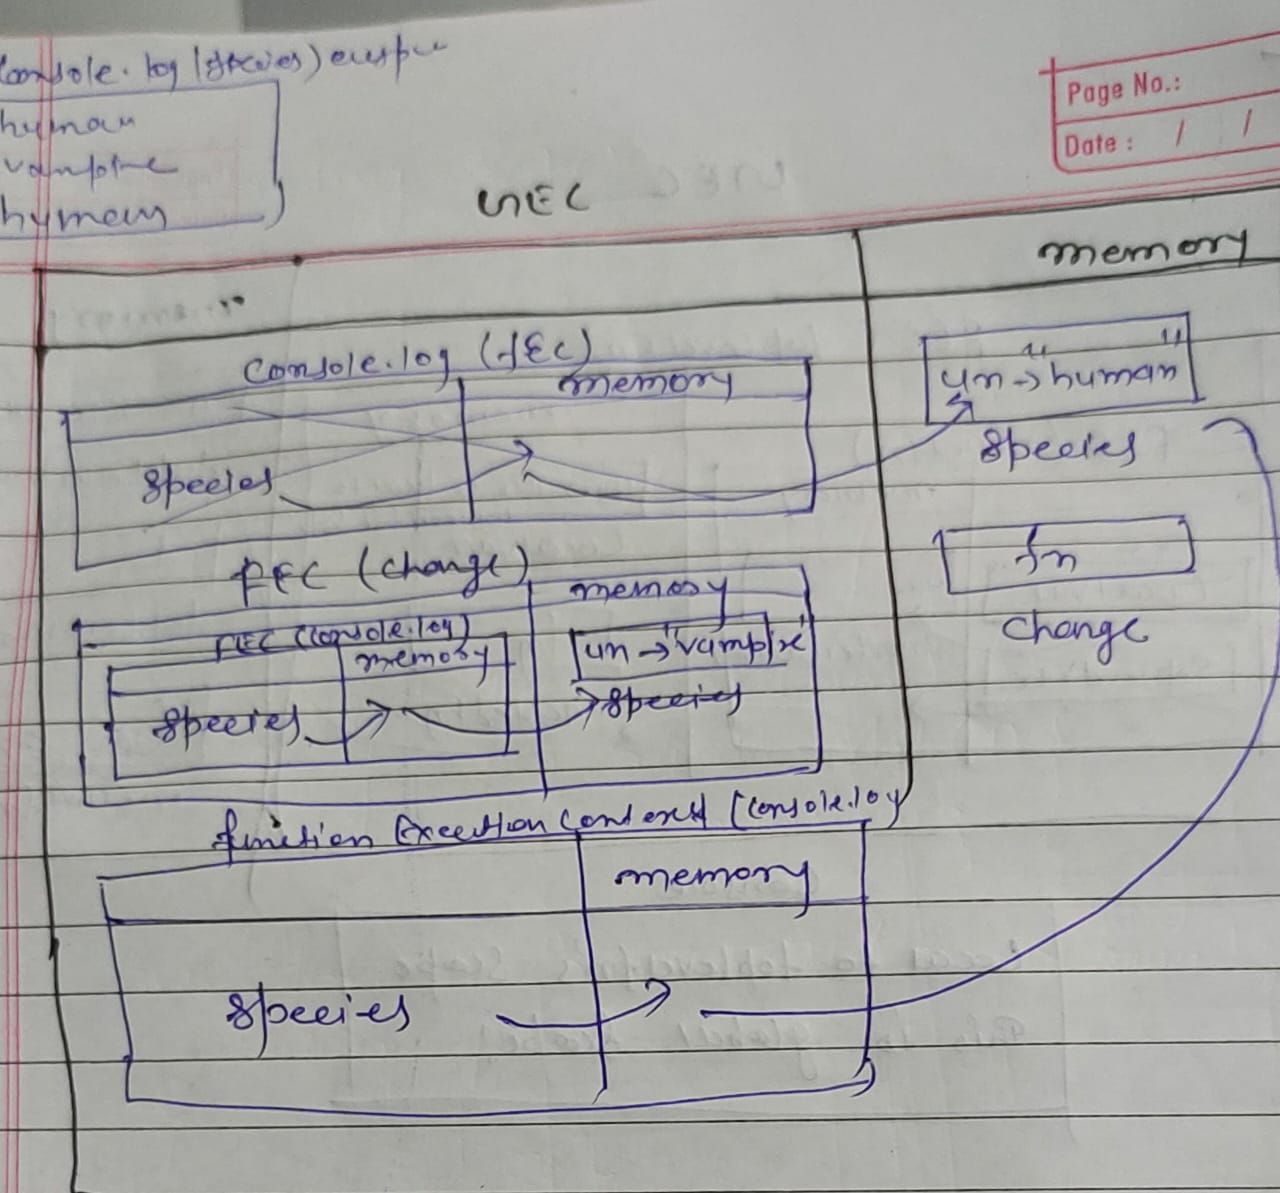 Console.log (species) output
human
vampire
human
Page No.:
Date : / /
GEC
memory
Console.log (FEC)
memory
un → "human"
species
species
fn
change
FEC (change)
memory
FEC (console.log)
memory
un → 'vampire'
species
species
function Execution Context (console.log
memory
species